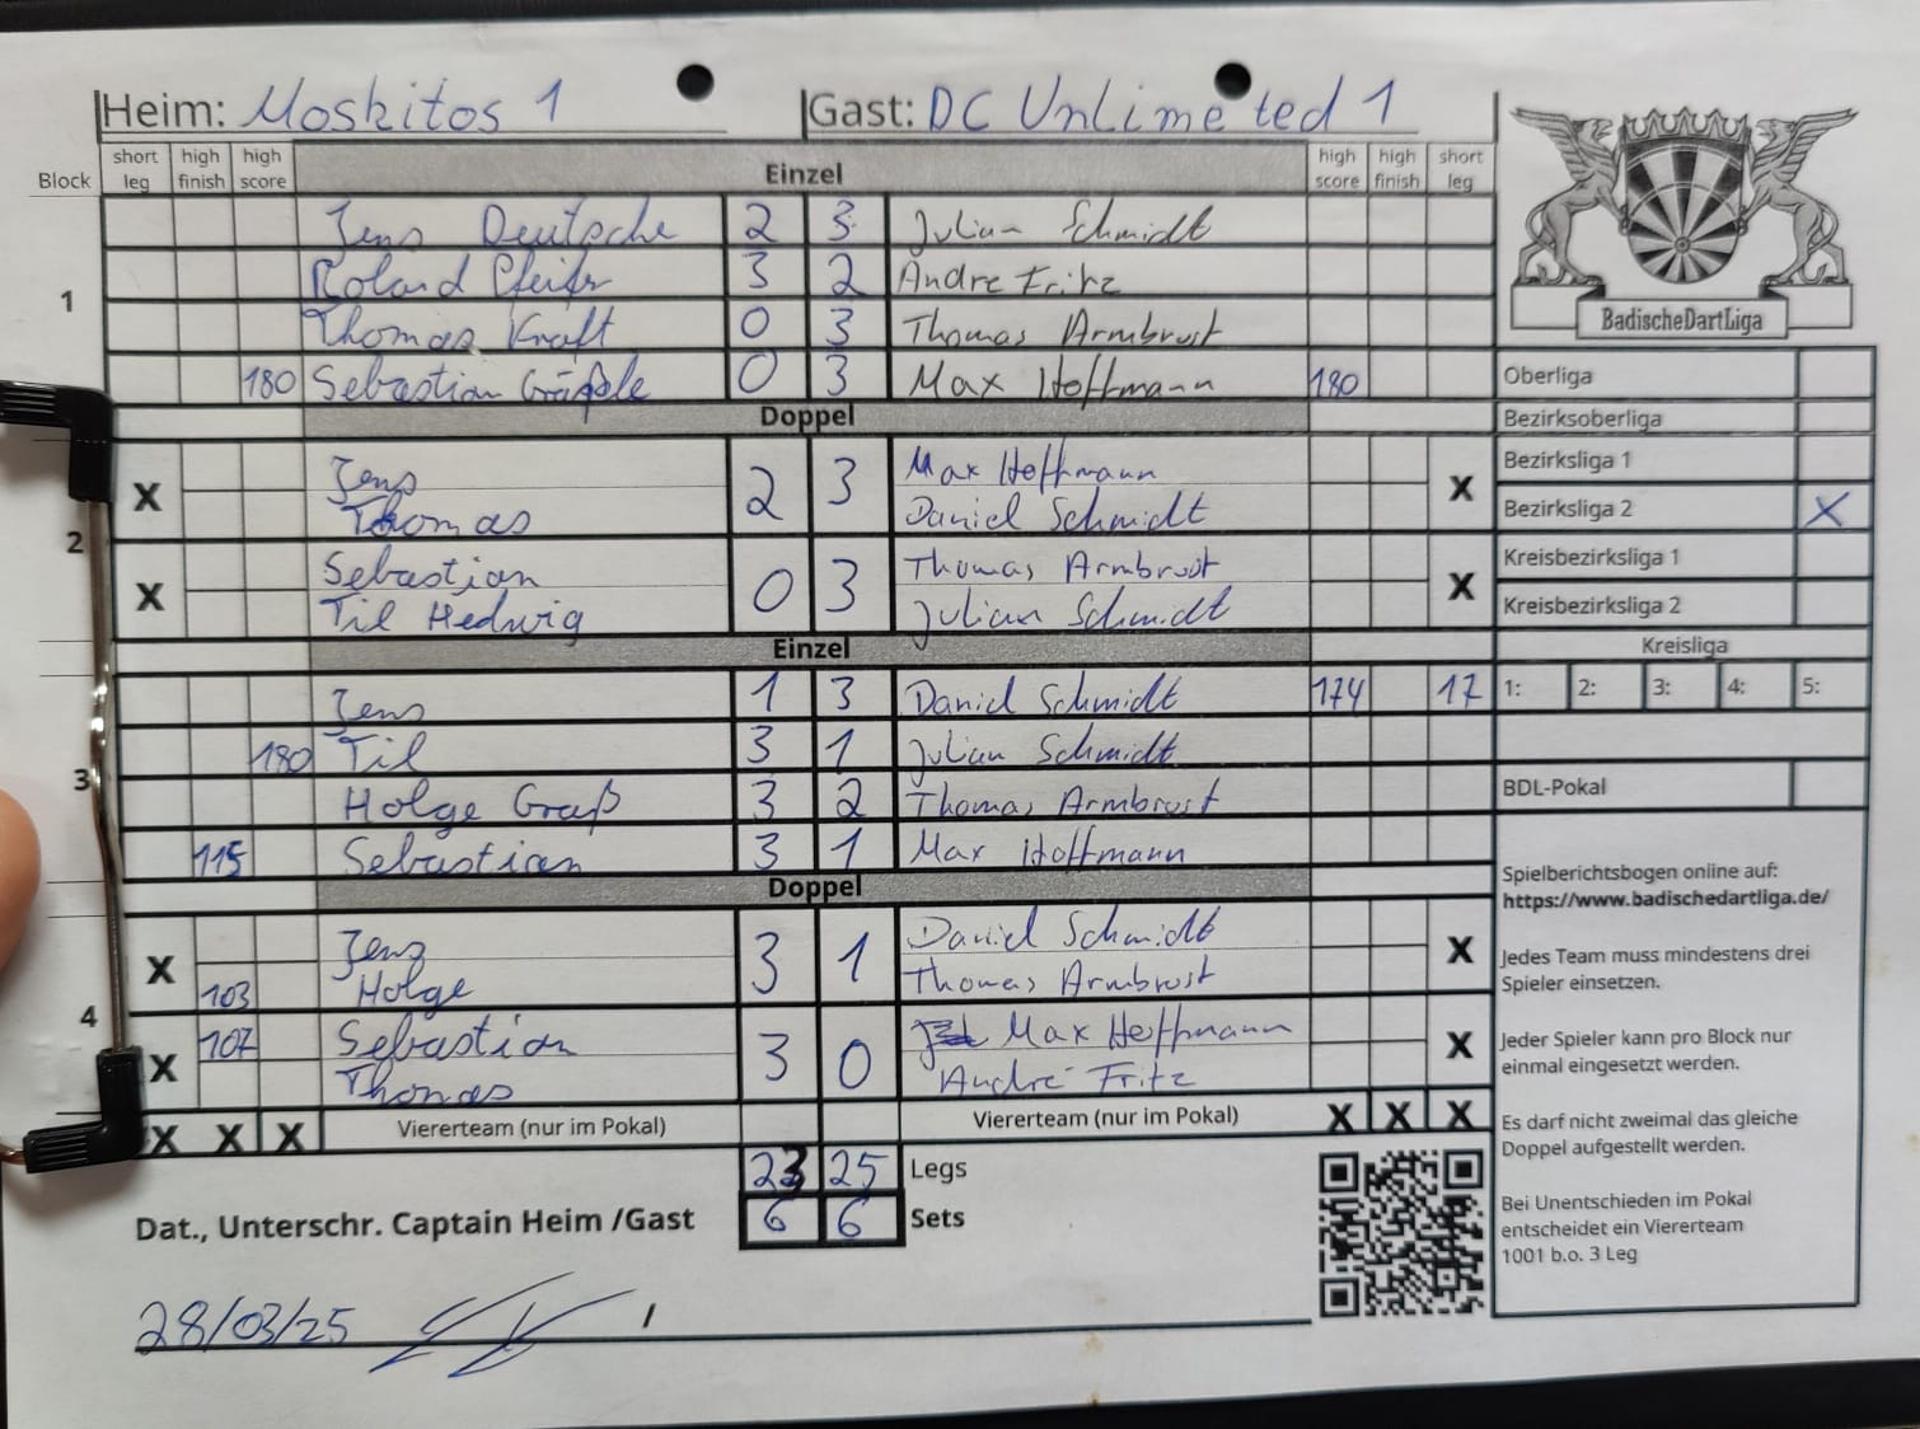 Heim: Moskitos 1 Gast: DC UnLimeted 1
Block short leg high finish high score Einzel high score high finish short leg
Jens Deutsche 2 3 Julian Schmidt
Roland Pfeifer 3 2 Andre Fritz
1 Thomas Kraft 0 3 Thomas Armbrust
BadischeDartLiga
180 Sebastian 0 3 Max Hoffmann 180
Oberliga
Doppel
Bezirksoberliga
X Jens Thomas 2 3 Max Hoffmann Daniel Schmidt X
Bezirksliga 1
Bezirksliga 2 X
2
X Sebastian Til Hedwig 0 3 Thomas Armbrust Julian Schmidt X
Kreisbezirksliga 1
Kreisbezirksliga 2
Einzel
Kreisliga
Jens 1 3 Daniel Schmidt 174 17
1: 2: 3: 4: 5:
180 Til 3 1 Julian Schmidt
3 Holge Graß 3 2 Thomas Armbrust
BDL-Pokal
115 Sebastian 3 1 Max Hoffmann
Doppel
Spielberichtsbogen online auf:
https://www.badischedartliga.de/
X Jens 103 Holge 3 1 Daniel Schmidt Thomas Armbrust X
Jedes Team muss mindestens drei
Spieler einsetzen.
4
X 107 Sebastian Thomas 3 0 Max Hoffmann André Fritz X
Jeder Spieler kann pro Block nur
einmal eingesetzt werden.
X X X Viererteam (nur im Pokal) Viererteam (nur im Pokal) X X X
Es darf nicht zweimal das gleiche
Doppel aufgestellt werden.
23 25 Legs
Dat., Unterschr. Captain Heim /Gast 6 6 Sets
Bei Unentschieden im Pokal
entscheidet ein Viererteam
1001 b.o. 3 Leg
28/03/25 /